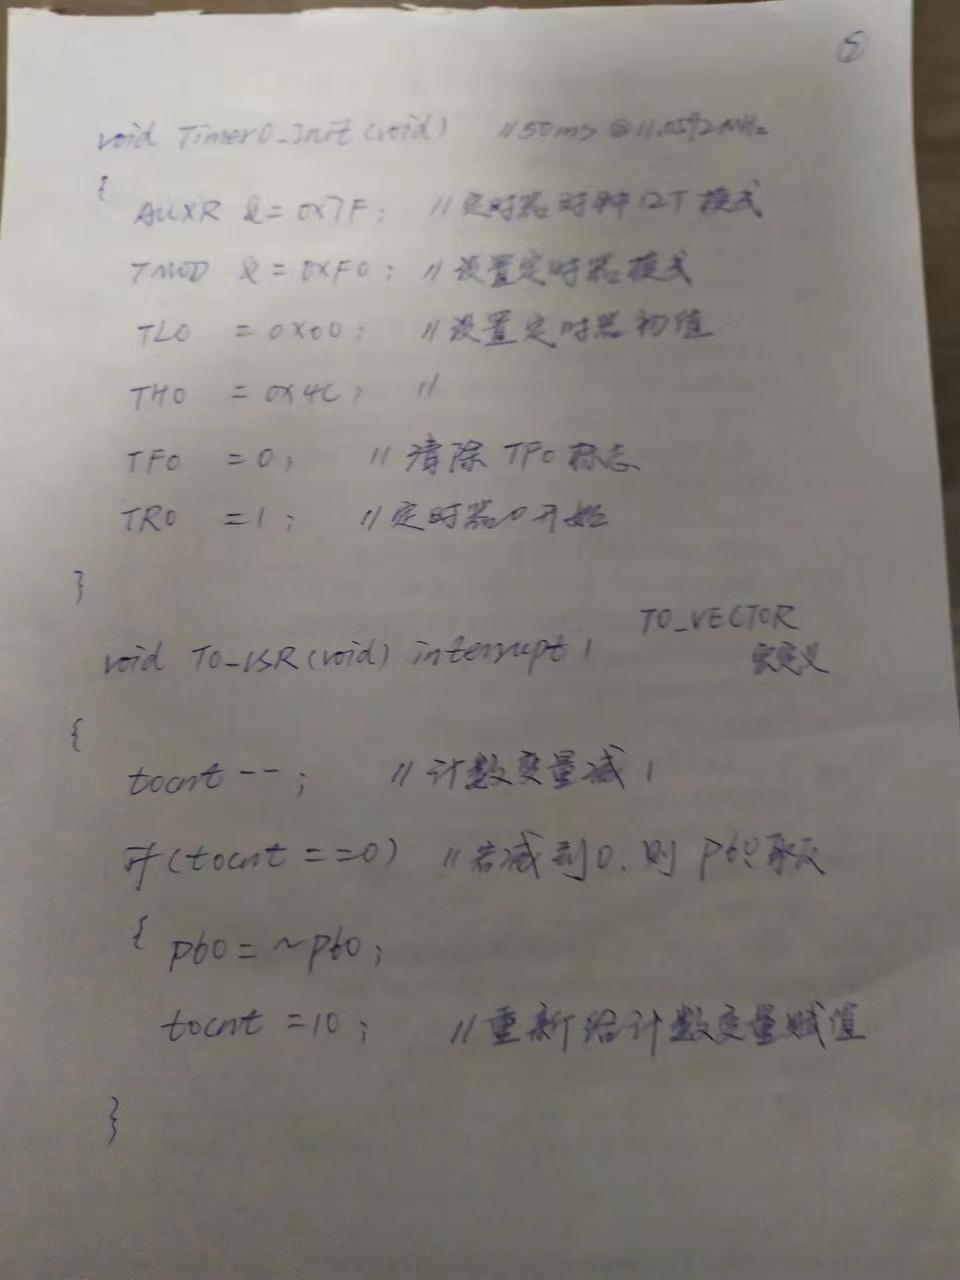 ⑤
void Timer0_Init(void) //50ms@11.0592MHz
{
AUXR &= 0x7F; //定时器时钟12T模式
TMOD &= 0xF0; //设置定时器模式
TL0 = 0x00; //设置定时器初值
TH0 = 0x4C; //
TF0 = 0; //清除TF0标志
TR0 = 1; //定时器0开始
}
T0_VECTOR
void T0_ISR(void) interrupt 1
宏定义
{
tocnt--; //计数变量减1
if(tocnt==0) //若减到0.则P60取反
{ P60=~P60;
tocnt=10; //重新给计数变量赋值
}